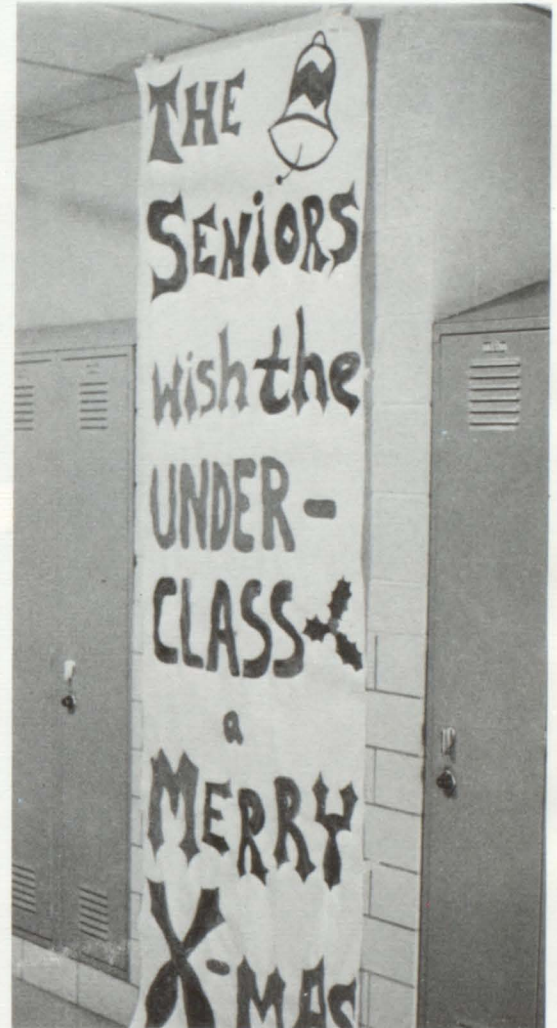 THE
SENiORS
wish the
UNDER-
CLASS
a
MERRY
X-MAS